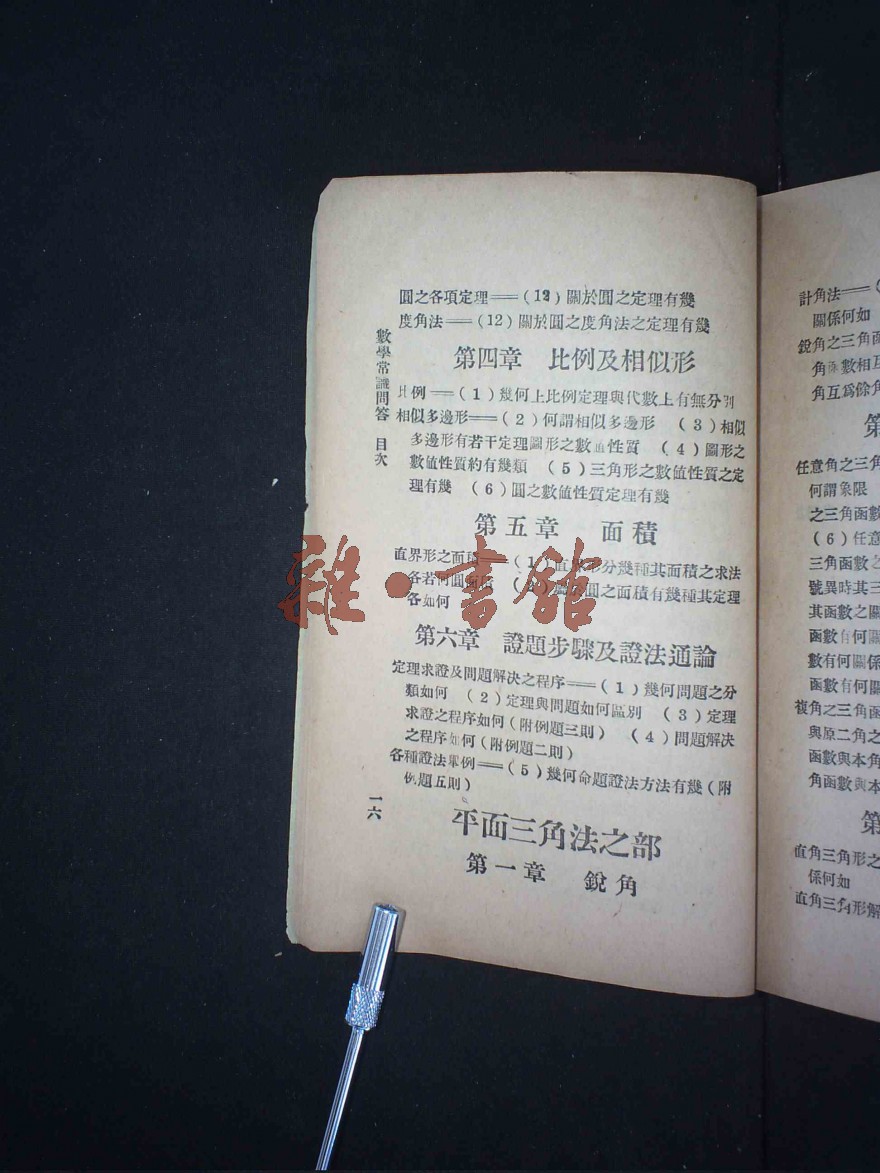 圓之各項定理——(12)關於圓之定理有幾
度角法——(12)關於圓之度角法之定理有幾
第四章 比例及相似形
比例——(1)幾何上比例定理與代數上有無分別
相似多邊形——(2)何謂相似多邊形 (3)相似
多邊形有若干定理圖形之數值性質 (4)圖形之
數値性質約有幾類 (5)三角形之數値性質之定
理有幾 (6)圓之數値性質定理有幾
第五章 面積
直界形之面積——(1)直界形分幾種其面積之求法
各若何 (2)圓之面積有幾種其定理
各如何
第六章 證題步驟及證法通論
定理求證及問題解決之程序——(1)幾何問題之分
類如何 (2)定理與問題如何區別 (3)定理
求證之程序如何(附例題三則) (4)問題解決
之程序如何(附例題二則)
各種證法舉例——(5)幾何命題證法方法有幾(附
例題五則)
平面三角法之部
第一章 銳角
數學常識問答 目次
一六
雜·書館
計角法——(
關係何如
銳角之三角函
角函數相互
角互爲餘角
第
任意角之三角
何謂象限
之三角函數
(6)任意
三角函數之
號異時其三
其函數之關
函數有何關
數有何關係
函數有何關
複角之三角函
與原二角之
函數與本角
角函數與本
第
直角三角形之
係何如
直角三角形解